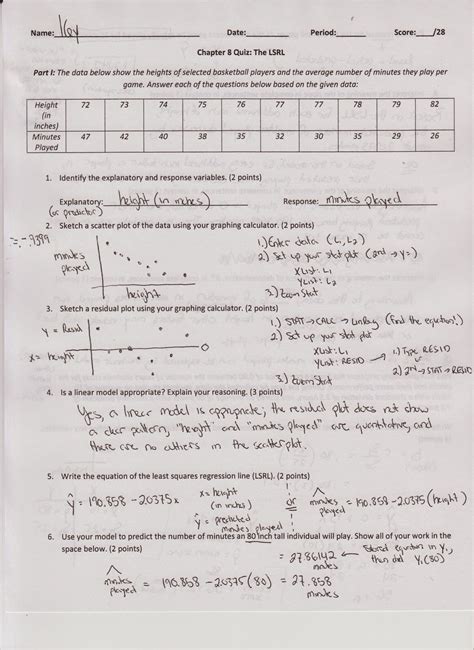 Name: Key Date: Period: Score: /28
Chapter 8 Quiz: The LSRL
Part I: The data below show the heights of selected basketball players and the average number of minutes they play per
game. Answer each of the questions below based on the given data:
Height (in inches) 72 73 74 75 76 77 77 78 79 82
Minutes Played 47 42 40 38 35 32 30 35 29 26
1. Identify the explanatory and response variables. (2 points)
Explanatory: height (in inches) Response: minutes played
(or predictor)
2. Sketch a scatter plot of the data using your graphing calculator. (2 points)
r = -.9399
minutes played
height
1.) Enter data (L1, L2)
2) Set up your stat plot (2nd → y=)
XList: L1
YList: L2
3.) Zoom Stat
3. Sketch a residual plot using your graphing calculator. (2 points)
y = Resid
x = height
1.) STAT → CALC → LinReg (Find the equation!)
2) Set up your stat plot
XList: L1
YList: RESID
1) Type RESID
2) 2nd → STAT → RESID
3.) Zoom Stat
4. Is a linear model appropriate? Explain your reasoning. (3 points)
Yes, a linear model is appropriate; the residual plot does not show
a clear pattern, "height" and "minutes played" are quantitative, and
there are no outliers in the scatterplot.
5. Write the equation of the least squares regression line (LSRL). (2 points)
ŷ = 190.858 - 2.0375x
x = height (in inches)
ŷ = predicted minutes played
or minutes played = 190.858 - 2.0375 (height)
6. Use your model to predict the number of minutes an 80 inch tall individual will play. Show all of your work in the
space below. (2 points)
= 27.86142 ← Stored equation in Y1, then did Y1(80)
minutes played = 190.858 - 2.0375 (80) = 27.858 minutes